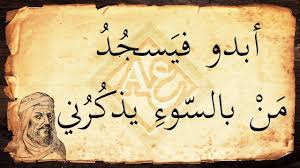 أبدو فيَسجُدُ
مَنْ بالسّوءِ يذكُرُني